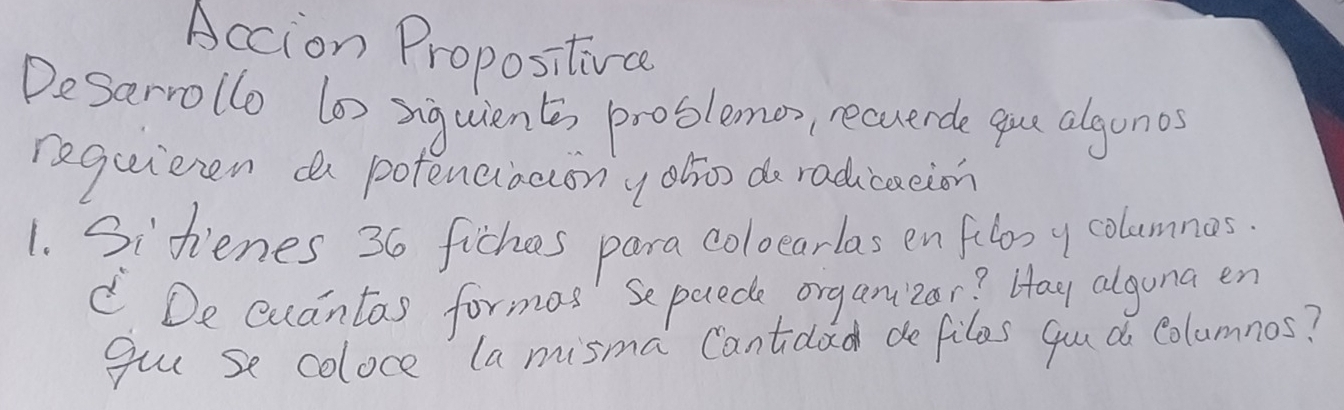 Accion Propositiva
Desarrollo los siguientes problemas, recuerde que algunos
requieren de potenciación y otros de radicación
1. Si tienes 36 fichas para colocarlas en filas y columnas.
¿ De cuántas formas se puede organizar? Hay alguna en
que se coloce la misma cantidad de filas que de columnas?